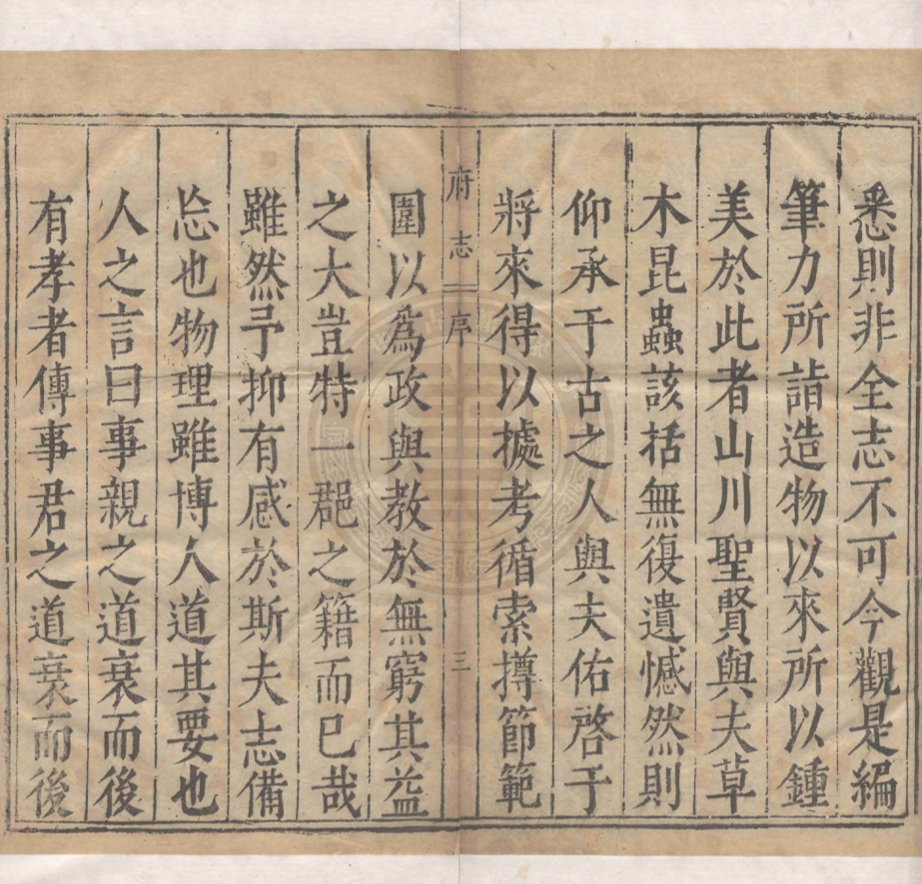 悉則非全志不可今觀是編
筆力所詣造物以來所以鍾
美於此者山川聖賢與夫草
木昆蟲該括無復遺憾然則
仰承于古之人與夫佑啓于
將來得以㨿考循索撙節範
府志 序 三
圍以為政與教於無窮其益
之大豈特一郡之籍而已哉
雖然予抑有感於斯夫志備
忘也物理雖博人道其要也
人之言曰事親之道衰而後
有孝者傳事君之道衰而後